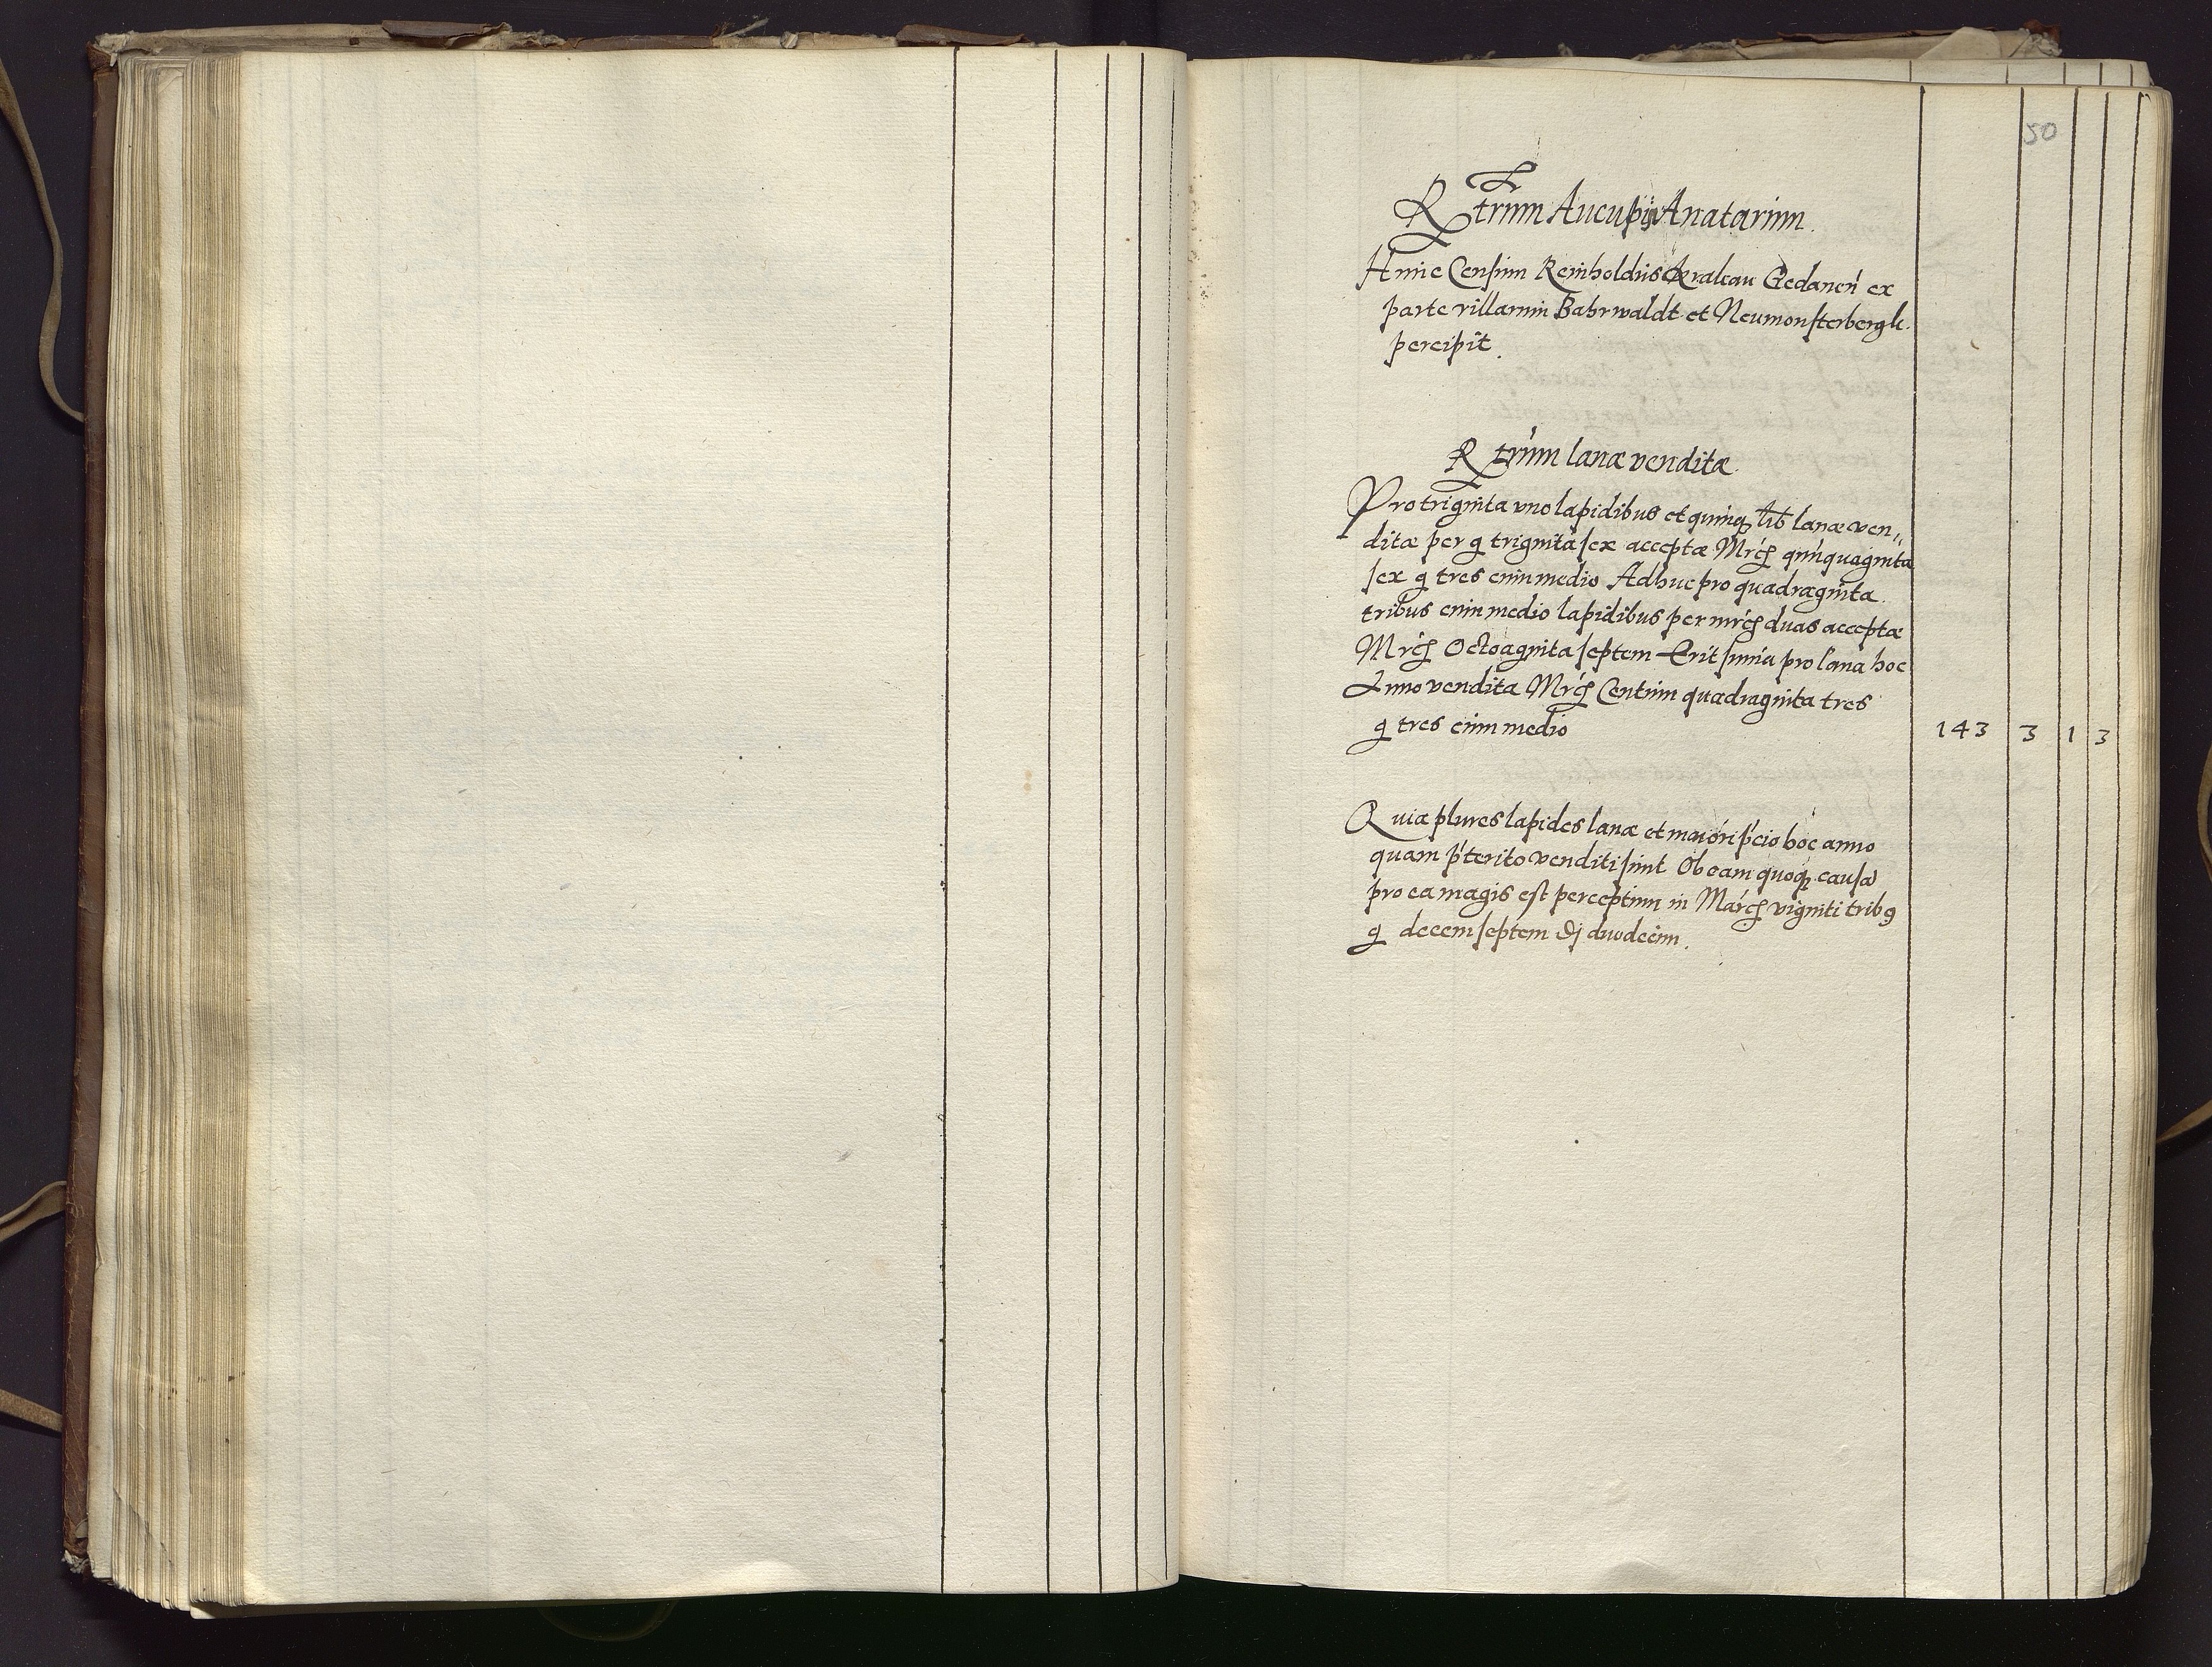 50
Rtrum Aucupij Anatarium.
Hunc Censum Reinholdus Krakau Gedanen ex
parte villarum Bahrwaldt et Neumonsterbergk
percipit.
Rtrum lanæ venditæ
Pro triginta uno lapidibus et quinq lib lanæ ven„
ditæ per g triginta sex acceptæ Mrcs quinquaginta
sex g tres cum medio Adhuc pro quadraginta
tribus cum medio lapidibus per mrcs duas acceptæ
Mrcs Octoaginta septem Erit suma pro lana hoc
Anno vendita Mrcs Centum quadraginta tres
g tres cum medio 143 3 1 3
Quia plures lapides lanæ et maiori pcio hoc anno
quam pterito venditi sunt Ob eam quoq causa
pro ea magis est perceptum in Marcs viginti trib9
g decem septem duodecim.